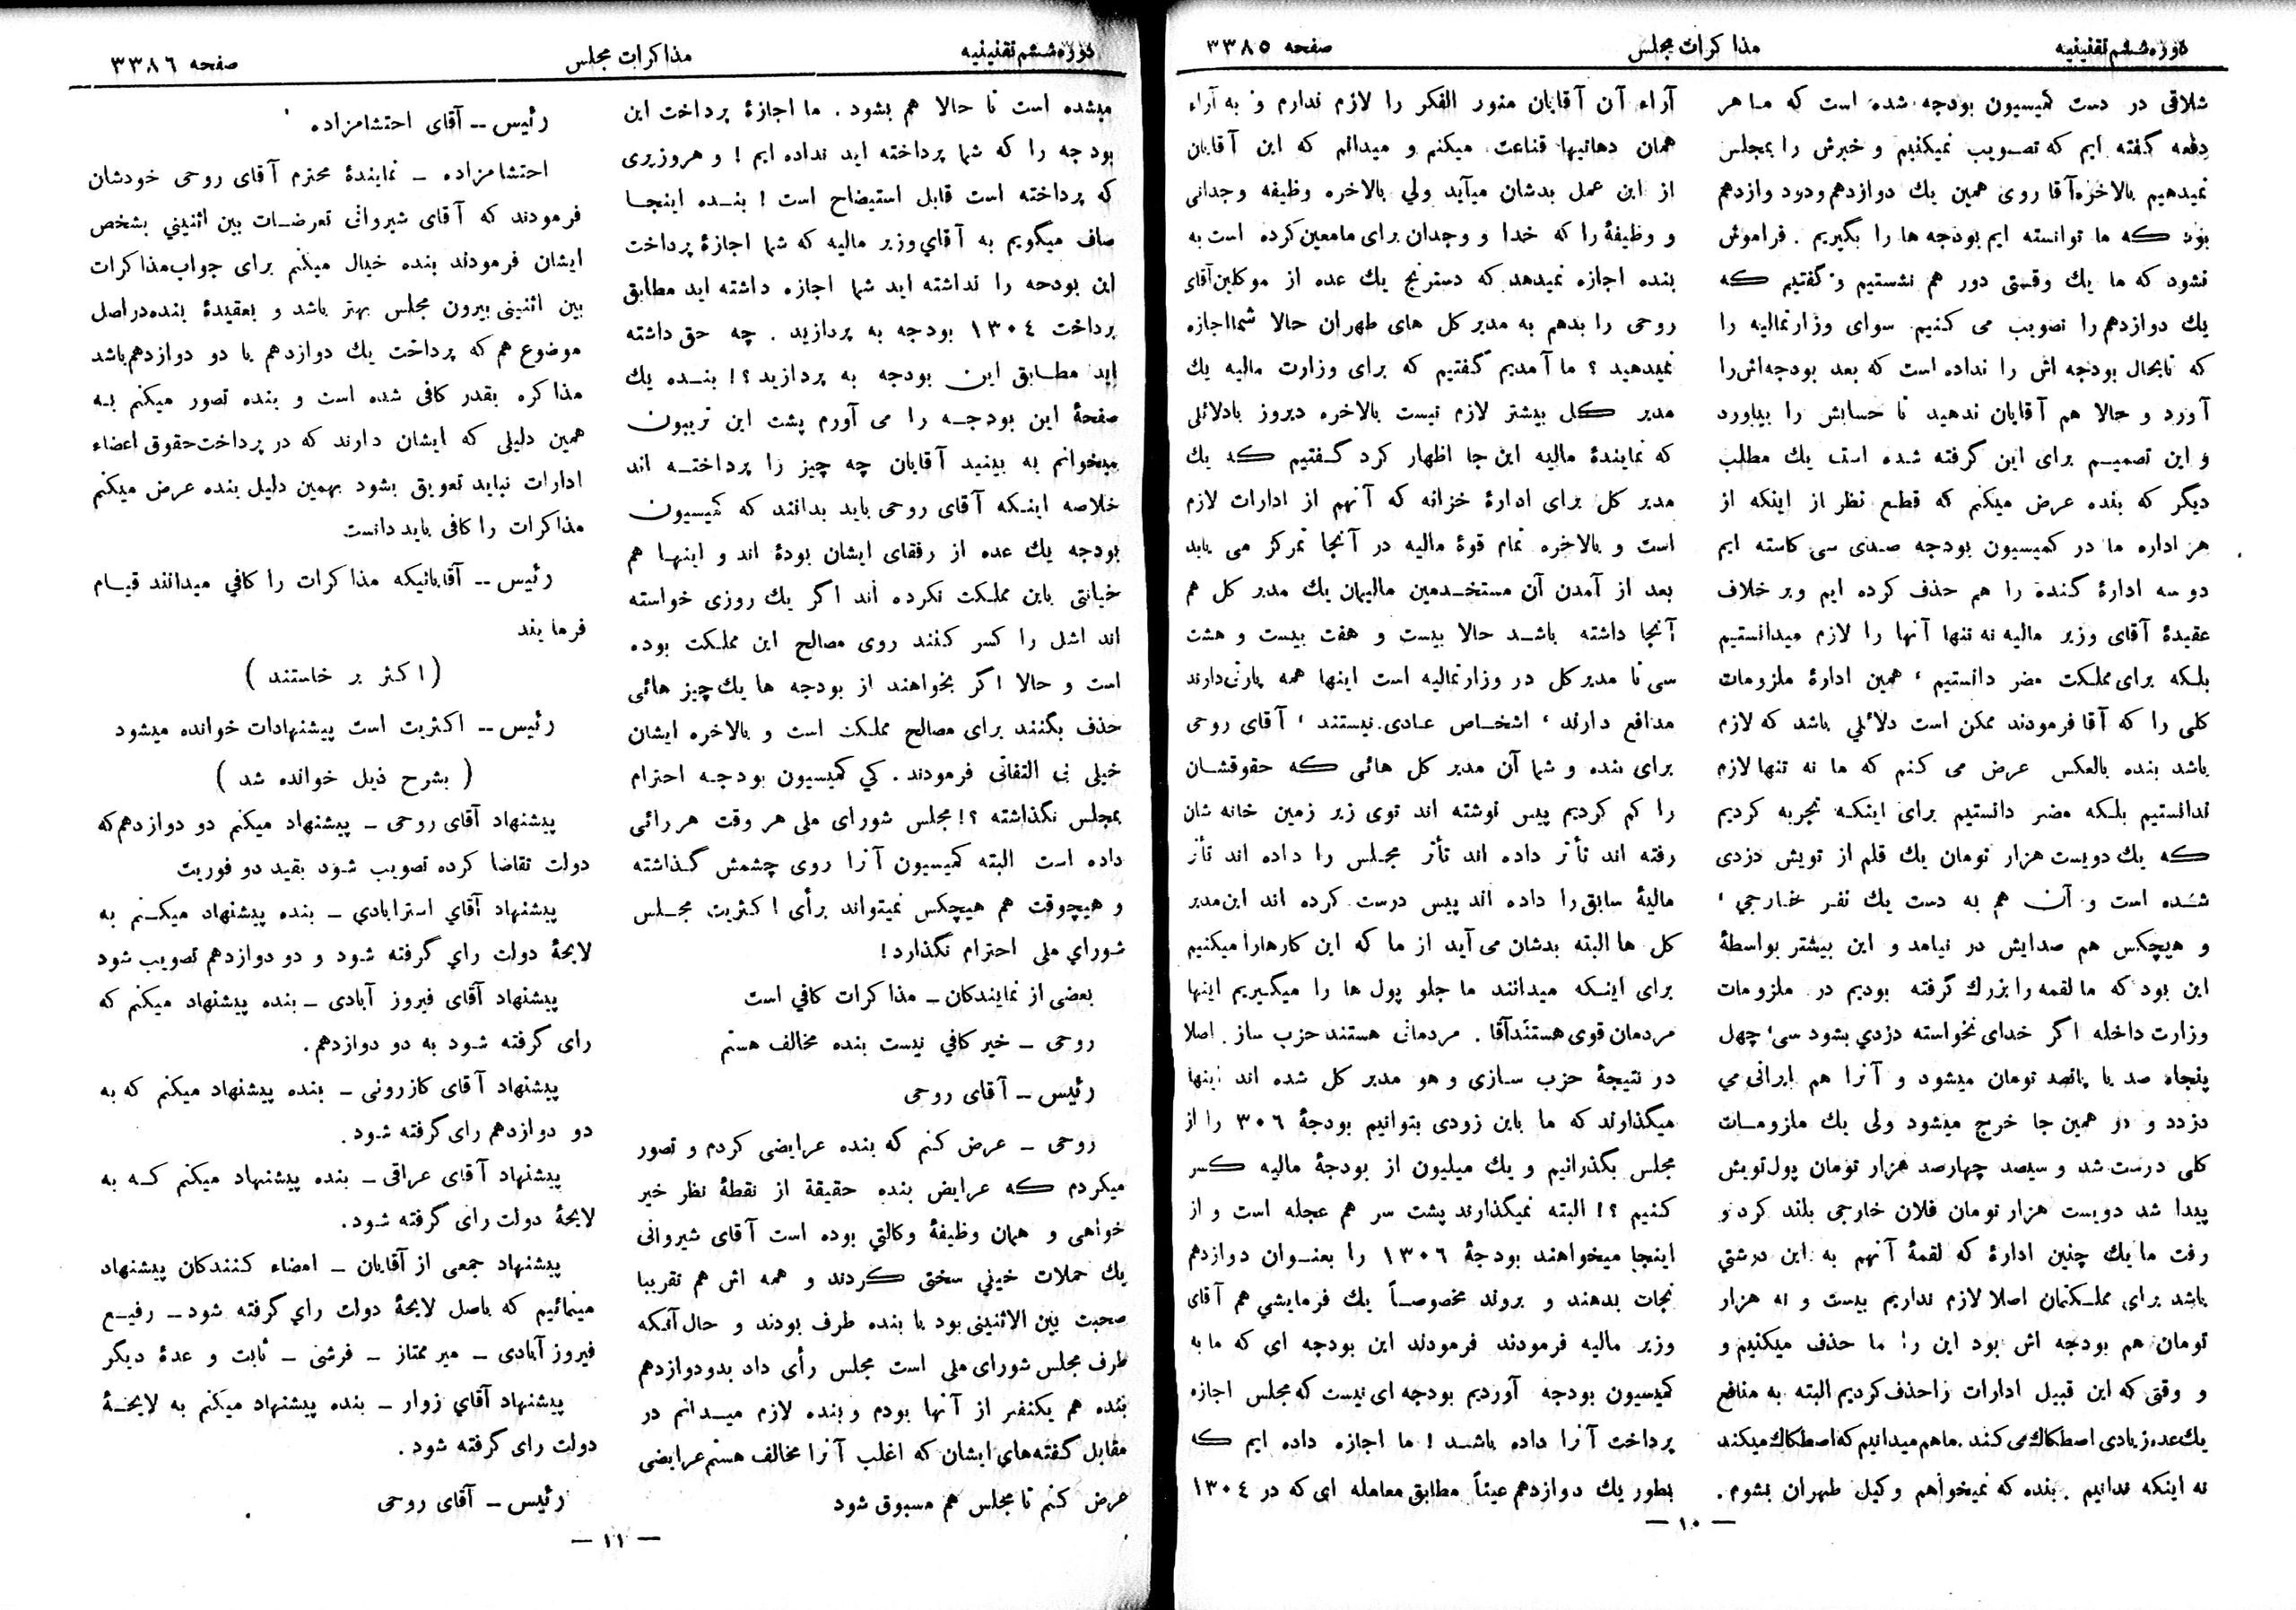 دوره ششم تقنینیه
مذاکرات مجلس
صفحه ۳۳۸۵
شلاقی در دست کمیسیون بودجه شده است که ما هر
دفعه گفته ایم که تصویب نمیکنیم و خبرش را بمجلس
نمیدهیم بالاخره آقا روی همین یك دوازدهم و دو دوازدهم
بود که ما توانسته ایم بودجه ها را بگیریم . فراموش
نشود که ما یك وقتی دور هم نشستیم و گفتیم که
یك دوازدهم را تصویب می کنیم سوای وزارتمالیه را
که تابحال بودجه اش را نداده است که بعد بودجه‌اش را
آورد و حالا هم آقایان ندهید تا حسابش را بیاورد
و این تصمیم برای این گرفته شده است یك مطلب
دیگر که بنده عرض میکنم که قطع نظر از اینکه از
هر اداره ما در کمیسیون بودجه صدی سی کاسته ایم
دو سه ادارهٔ گنده را هم حذف کرده ایم و بر خلاف
عقیدهٔ آقای وزیر مالیه نه تنها آنها را لازم میدانستیم
بلکه برای مملکت مضر دانستیم ، همین ادارهٔ ملزومات
کلی را که آقا فرمودند ممکن است دلائلي باشد که لازم
باشد بنده بالعکس عرض می کنم که ما نه تنها لازم
ندانستیم بلکه مضر دانستیم برای اینکه تجربه کردیم
که یك دویست هزار تومان یك قلم از تویش دزدی
شده است و آن هم به دست یك نفر خارجي ،
و هیچکس هم صدایش در نیامد و این بیشتر بواسطهٔ
این بود که ما لقمه را بزرك گرفته بودیم در ملزومات
وزارت داخله اگر خدای نخواسته دزدي بشود سی ، چهل
پنجاه صد یا پانصد تومان میشود و آنرا هم ایرانی می
دزدد و در همین جا خرج میشود ولی یك ملزومات
کلی درست شد و سیصد چهارصد هزار تومان پول تویش
پیدا شد دویست هزار تومان فلان خارجی بلند کرد و
رفت ما یك چنین ادارهٔ که لقمهٔ آنهم به این درشتي
باشد برای مملکتمان اصلا لازم نداریم بیست و نه هزار
تومان هم بودجه اش بود این را ما حذف میکنیم و
و وقتی که این قبیل ادارات را حذف کردیم البته به منافع
یك عده زیادی اصطکاك می کند . ما هم میدانیم که اصطکاك میکند
نه اینکه ندانیم . بنده که نمیخواهم وکیل طهران بشوم .
آراء آن آقایان منور الفکر را لازم ندارم و به آراء
همان دهاتیها قناعت میکنم و میدانم که این آقایان
از این عمل بدشان میآید ولي بالاخره وظیفه وجدانی
و وظیفهٔ را که خدا و وجدان برای ما معین کرده است به
بنده اجازه نمیدهد که دسترنج یك عده از موکلین آقای
روحی را بدهم به مدیر کل های طهران حالا شما اجازه
نمیدهید ؟ ما آمدیم گفتیم که برای وزارت مالیه یك
مدیر کل بیشتر لازم نیست بالاخره دیروز بادلائلی
که نمایندهٔ مالیه این جا اظهار کرد گفتیم که یك
مدیر کل برای ادارهٔ خزانه که آنهم از ادارات لازم
است و بالاخره تمام قوهٔ مالیه در آنجا تمرکز می یابد
بعد از آمدن آن مستخدمین مالیمان یك مدیر کل هم
آنجا داشته باشد حالا بیست و هفت بیست و هشت
سی تا مدیر کل در وزارتمالیه است اینها همه پارتی دارند
مدافع دارند ، اشخاص عادی نیستند ، آقای روحی
برای بنده و شما آن مدیر کل هائی که حقوقشان
را کم کردیم پیس نوشته اند توی زیر زمین خانه شان
رفته اند تأتر داده اند تأتر مجلس را داده اند تأتر
مالیهٔ سابق را داده اند پیس درست کرده اند این مدیر
کل ها البته بدشان می آید از ما که این کارهارا میکنیم
برای اینکه میدانند ما جلو پول ها را میگیریم اینها
مردمان قوی هستند آقا . مردمانی هستند حزب ساز . اصلا
در نتیجهٔ حزب سازی و هو مدیر کل شده اند اینها
میگذارند که ما باین زودی بتوانیم بودجهٔ ۳۰٦ را از
مجلس بگذرانیم و یك میلیون از بودجهٔ مالیه کسر
کنیم ؟! البته نمیگذارند پشت سر هم عجله است و از
اینجا میخواهند بودجهٔ ۱۳۰٦ را بعنوان دوازدهم
نجات بدهند و بروند مخصوصاً یك فرمایشي هم آقای
وزیر مالیه فرمودند فرمودند این بودجه ای که ما به
کمیسیون بودجه آوردیم بودجه ای نیست که مجلس اجازه
پرداخت آنرا داده باشد ! ما اجازه داده ایم که
بطور یك دوازدهم عیناً مطابق معامله ای که در ۱۳۰٤
— ۱۰ —
دوره ششم تقنینیه
مذاکرات مجلس
صفحه ۳۳۸٦
میشده است تا حالا هم بشود . ما اجازهٔ پرداخت این
بودجه را که شما پرداخته اید نداده ایم ! و هر وزیری
که پرداخته است قابل استیضاح است ! بنده اینجا
صاف میگویم به آقاي وزیر مالیه که شما اجازهٔ پرداخت
این بودجه را نداشته اید شما اجازه داشته اید مطابق
پرداخت ۱۳۰٤ بودجه به پردازید . چه حق داشته
اید مطابق این بودجه به پردازید ؟! بنده یك
صفحهٔ این بودجه را می آورم پشت این تریبون
میخوانم به بینید آقایان چه چیز را پرداخته اند
خلاصه اینکه آقای روحی باید بدانند که کمیسیون
بودجه یك عده از رفقای ایشان بودهٔ اند و اینها هم
خیانتی باین مملکت نکرده اند اگر یك روزی خواسته
اند اشل را کسر کنند روی مصالح این مملکت بوده
است و حالا اگر بخواهند از بودجه ها یك چیز هائی
حذف بکنند برای مصالح مملکت است و بالاخره ایشان
خیلی بی التفاتی فرمودند . کي کمیسیون بودجه احترام
بمجلس نگذاشته ؟! مجلس شورای ملی هر وقت هر رائی
داده است البته کمیسیون آنرا روی چشمش گذاشته
و هیچوقت هم هیچکس نمیتواند برأی اکثریت مجلس
شوراي ملی احترام نگذارد !
بعضی از نمایندکان ــ مذاکرات کافي است
روحی ــ خیر کافي نیست بنده مخالف هستم
رئیس ــ آقای روحی
روحی ــ عرض کنم که بنده عرایضی کردم و تصور
میکردم که عرایض بنده حقیقة از نقطهٔ نظر خیر
خواهی و همان وظیفهٔ وکالتي بوده است آقای شیروانی
یك حملات خیلي سختی کردند و همه اش هم تقریبا
صحبت بین الاثنینی بود با بنده طرف بودند و حال آنکه
طرف مجلس شورای ملی است مجلس رأی داد بدو دوازدهم
بنده هم یکنفر از آنها بودم و بنده لازم میدانم در
مقابل گفته‌های ایشان که اغلب آنرا مخالف هستم عرایضی
عرض کنم تا مجلس هم مسبوق شود
رئیس ــ آقای احتشامزاده
احتشامزاده ــ نمایندهٔ محترم آقای روحی خودشان
فرمودند که آقای شیروانی تعرضات بین اثنیني بشخص
ایشان فرمودند بنده خیال میکنم برای جواب مذاکرات
بین اثنینی بیرون مجلس بهتر باشد و بعقیدهٔ بنده در اصل
موضوع هم که پرداخت یك دوازدهم یا دو دوازدهم باشد
مذاکره بقدر کافی شده است و بنده تصور میکنم به
همین دلیلی که ایشان دارند که در پرداخت حقوق اعضاء
ادارات نباید تعویق بشود بهمین دلیل بنده عرض میکنم
مذاکرات را کافی باید دانست
رئیس ــ آقایانیکه مذاکرات را کافي میدانند قیام
فرمایند
( اکثر بر خاستند )
رئیس ــ اکثریت است پیشنهادات خوانده میشود
( بشرح ذیل خوانده شد )
پیشنهاد آقای روحی ــ پیشنهاد میکنم دو دوازدهم که
دولت تقاضا کرده تصویب شود بقید دو فوریت
پیشنهاد آقاي استرابادي ــ بنده پیشنهاد میکنم به
لایحهٔ دولت راي گرفته شود و دو دوازدهم تصویب شود
پیشنهاد آقای فیروز آبادی ــ بنده پیشنهاد میکنم که
رای گرفته شود به دو دوازدهم .
پیشنهاد آقای کازرونی ــ بنده پیشنهاد میکنم که به
دو دوازدهم رای گرفته شود .
پیشنهاد آقای عراقی ــ بنده پیشنهاد میکنم که به
لایحهٔ دولت رای گرفته شود .
پیشنهاد جمعی از آقایان ــ امضاء کنندکان پیشنهاد
مینمائیم که باصل لایحهٔ دولت راي گرفته شود ــ رفیع
فیروز آبادی ــ میر ممتاز ــ فرشی ــ ثابت و عدهٔ دیگر
پیشنهاد آقاي زوار ــ بنده پیشنهاد میکنم به لایحهٔ
دولت رای گرفته شود .
رئیس ــ آقای روحی
— ۱۱ —